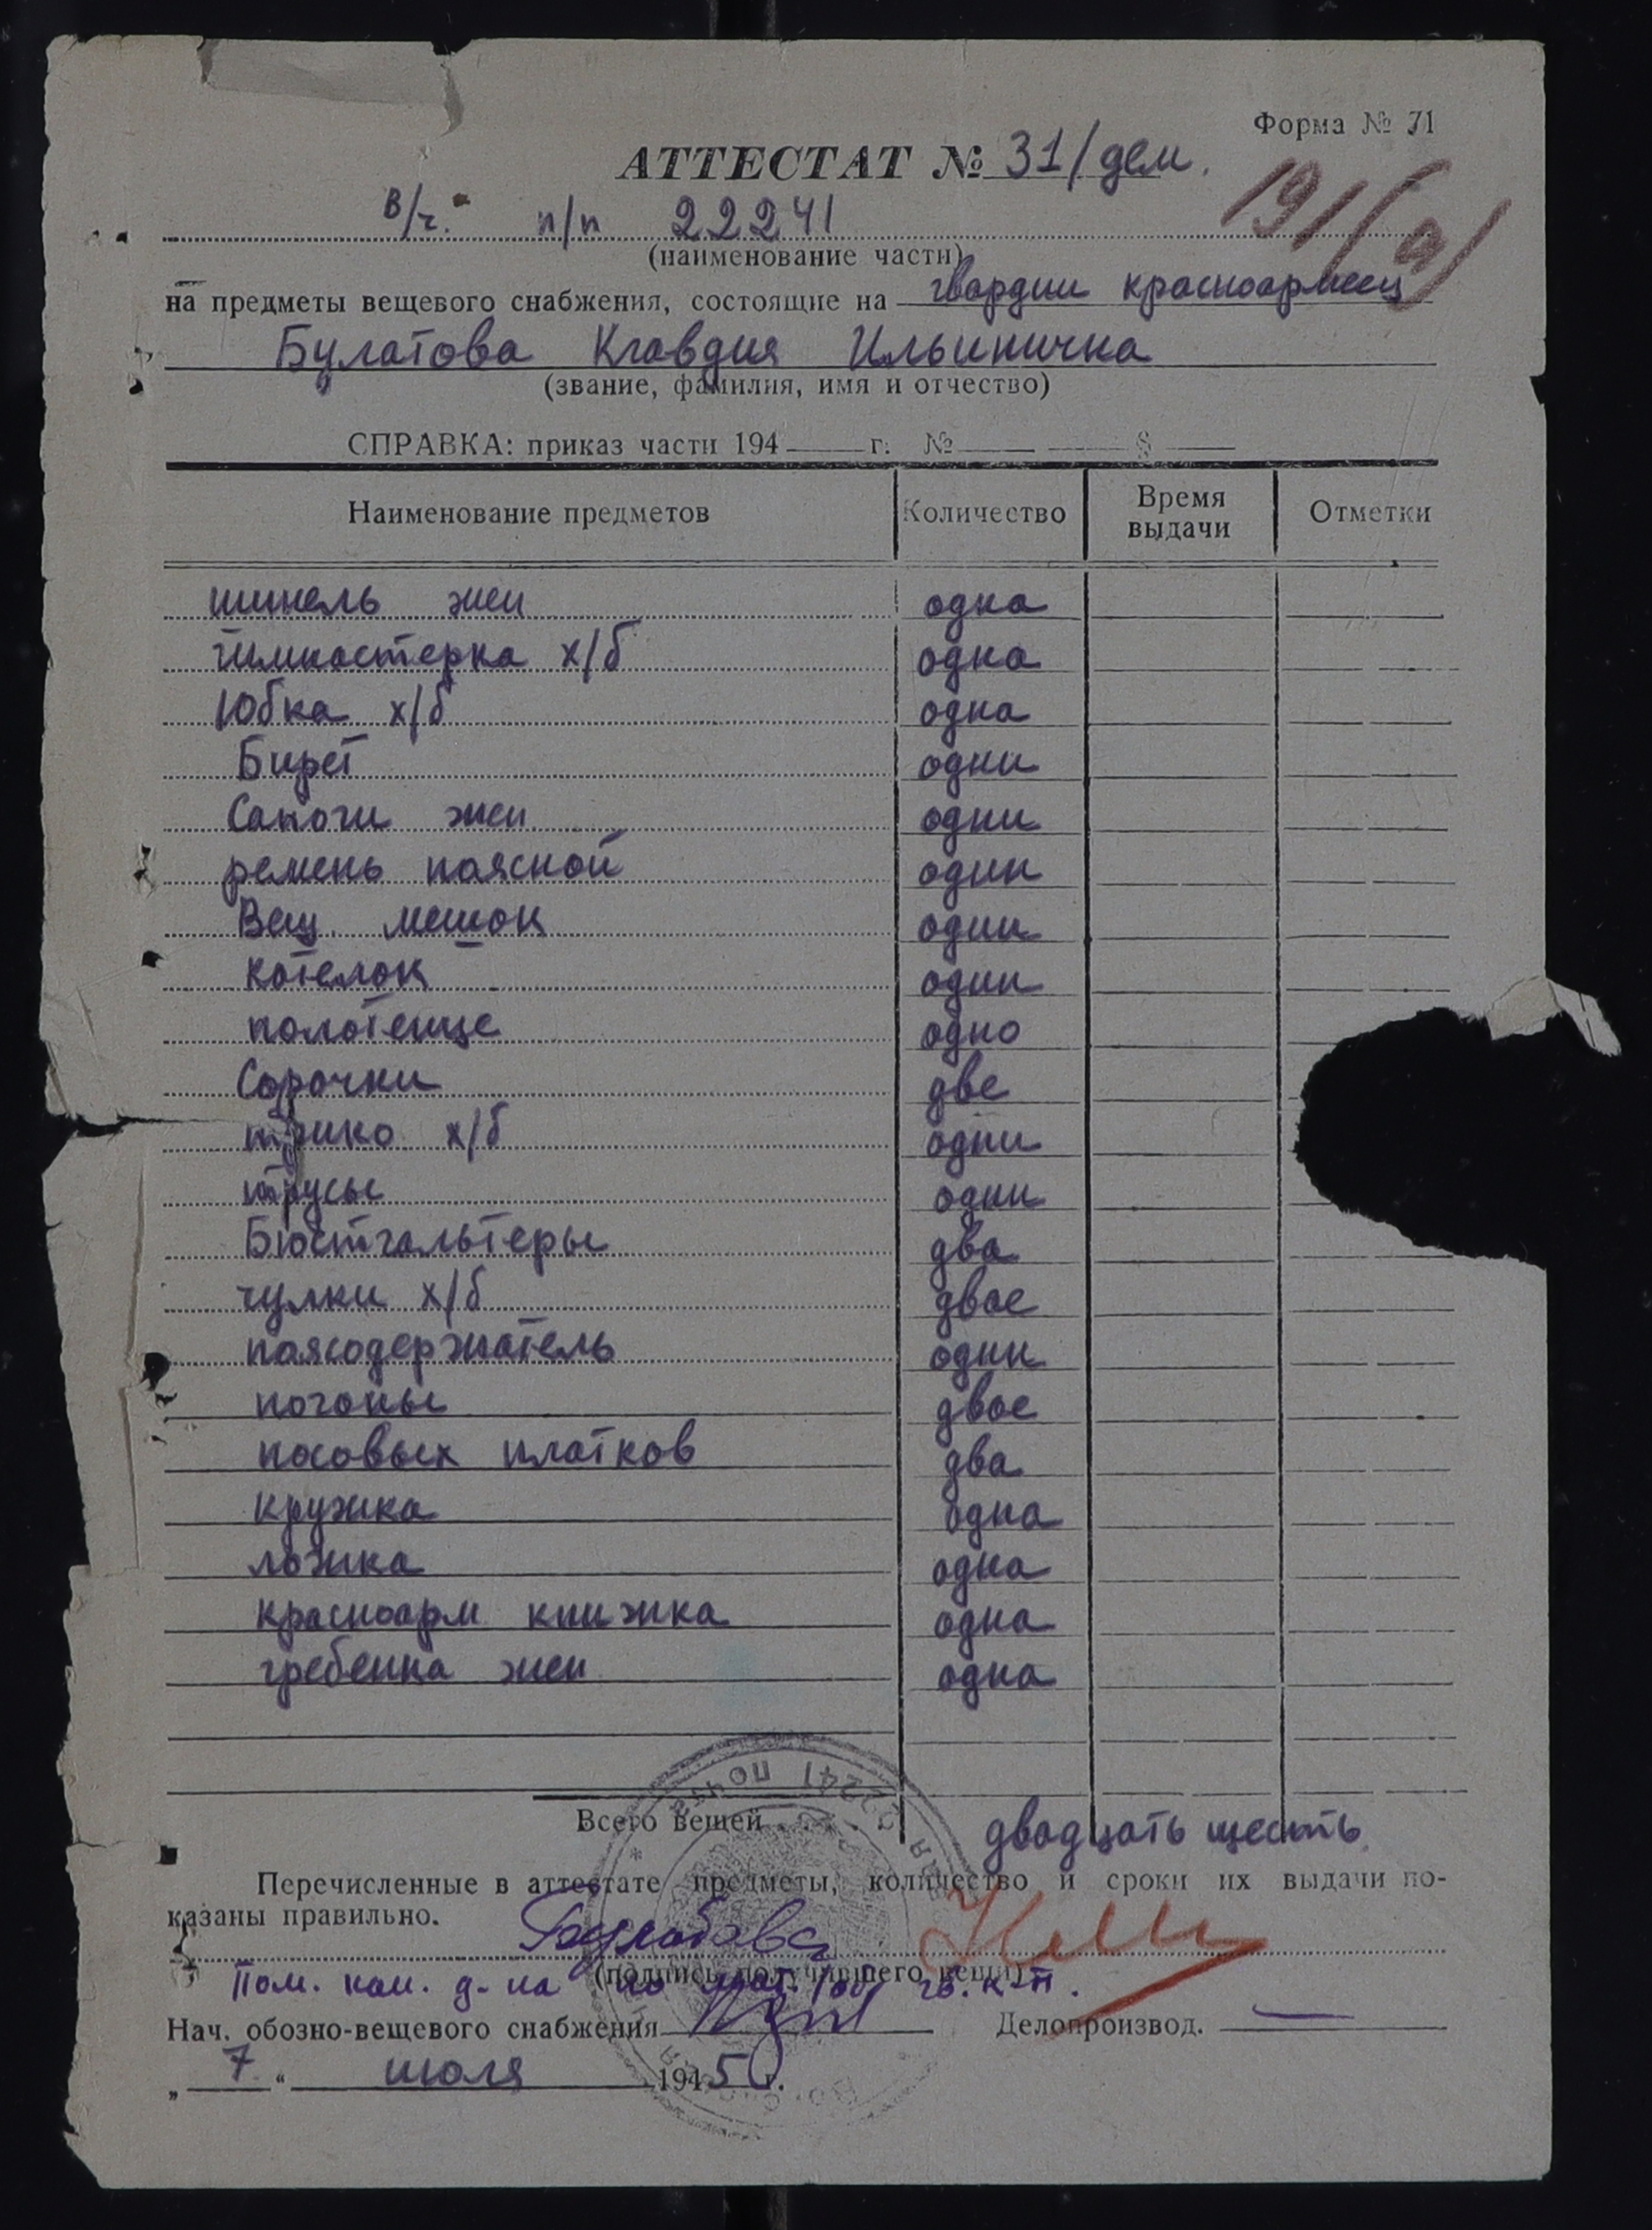 Форма № 71
АТТЕСТАТ № 31/дем.
191(а)
в/ч. п/п 22241
(наименование части)
на предметы вещевого снабжения, состоящие на гвардии красноармеец
Булатова Клавдия Ильинична
(звание, фамилия, имя и отчество)
СПРАВКА: приказ части 194 г. № §
Наименование предметов Количество Время выдачи Отметки
шинель жен одна
гимнастерка х/б одна
Юбка х/б одна
Бирет один
Сапоги жен одни
ремень поясной один
Вещ. мешок один
котелок один
полотенце одно
Сорочки две
трико х/б одни
трусы одни
Бюстгальтеры два
чулки х/б двое
поясодержатель один
погоны двое
носовых платков два
кружка одна
ложка одна
красноарм книжка одна
гребенка жен одна
Всего вещей двадцать шесть
Перечисленные в аттестате предметы, количество и сроки их выдачи по-
казаны правильно.
Булатова
(подпись получившего вещи)
Пом. ком. д-на по гв. к-н.
Нач. обозно-вещевого снабжения Делопроизвод.
„7“ июля 1945 г.